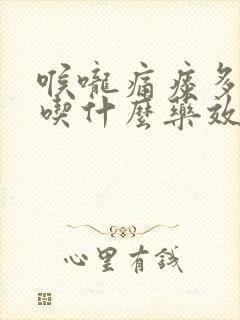 喉嚨痛痰多
喫什麼藥效
心里有錢